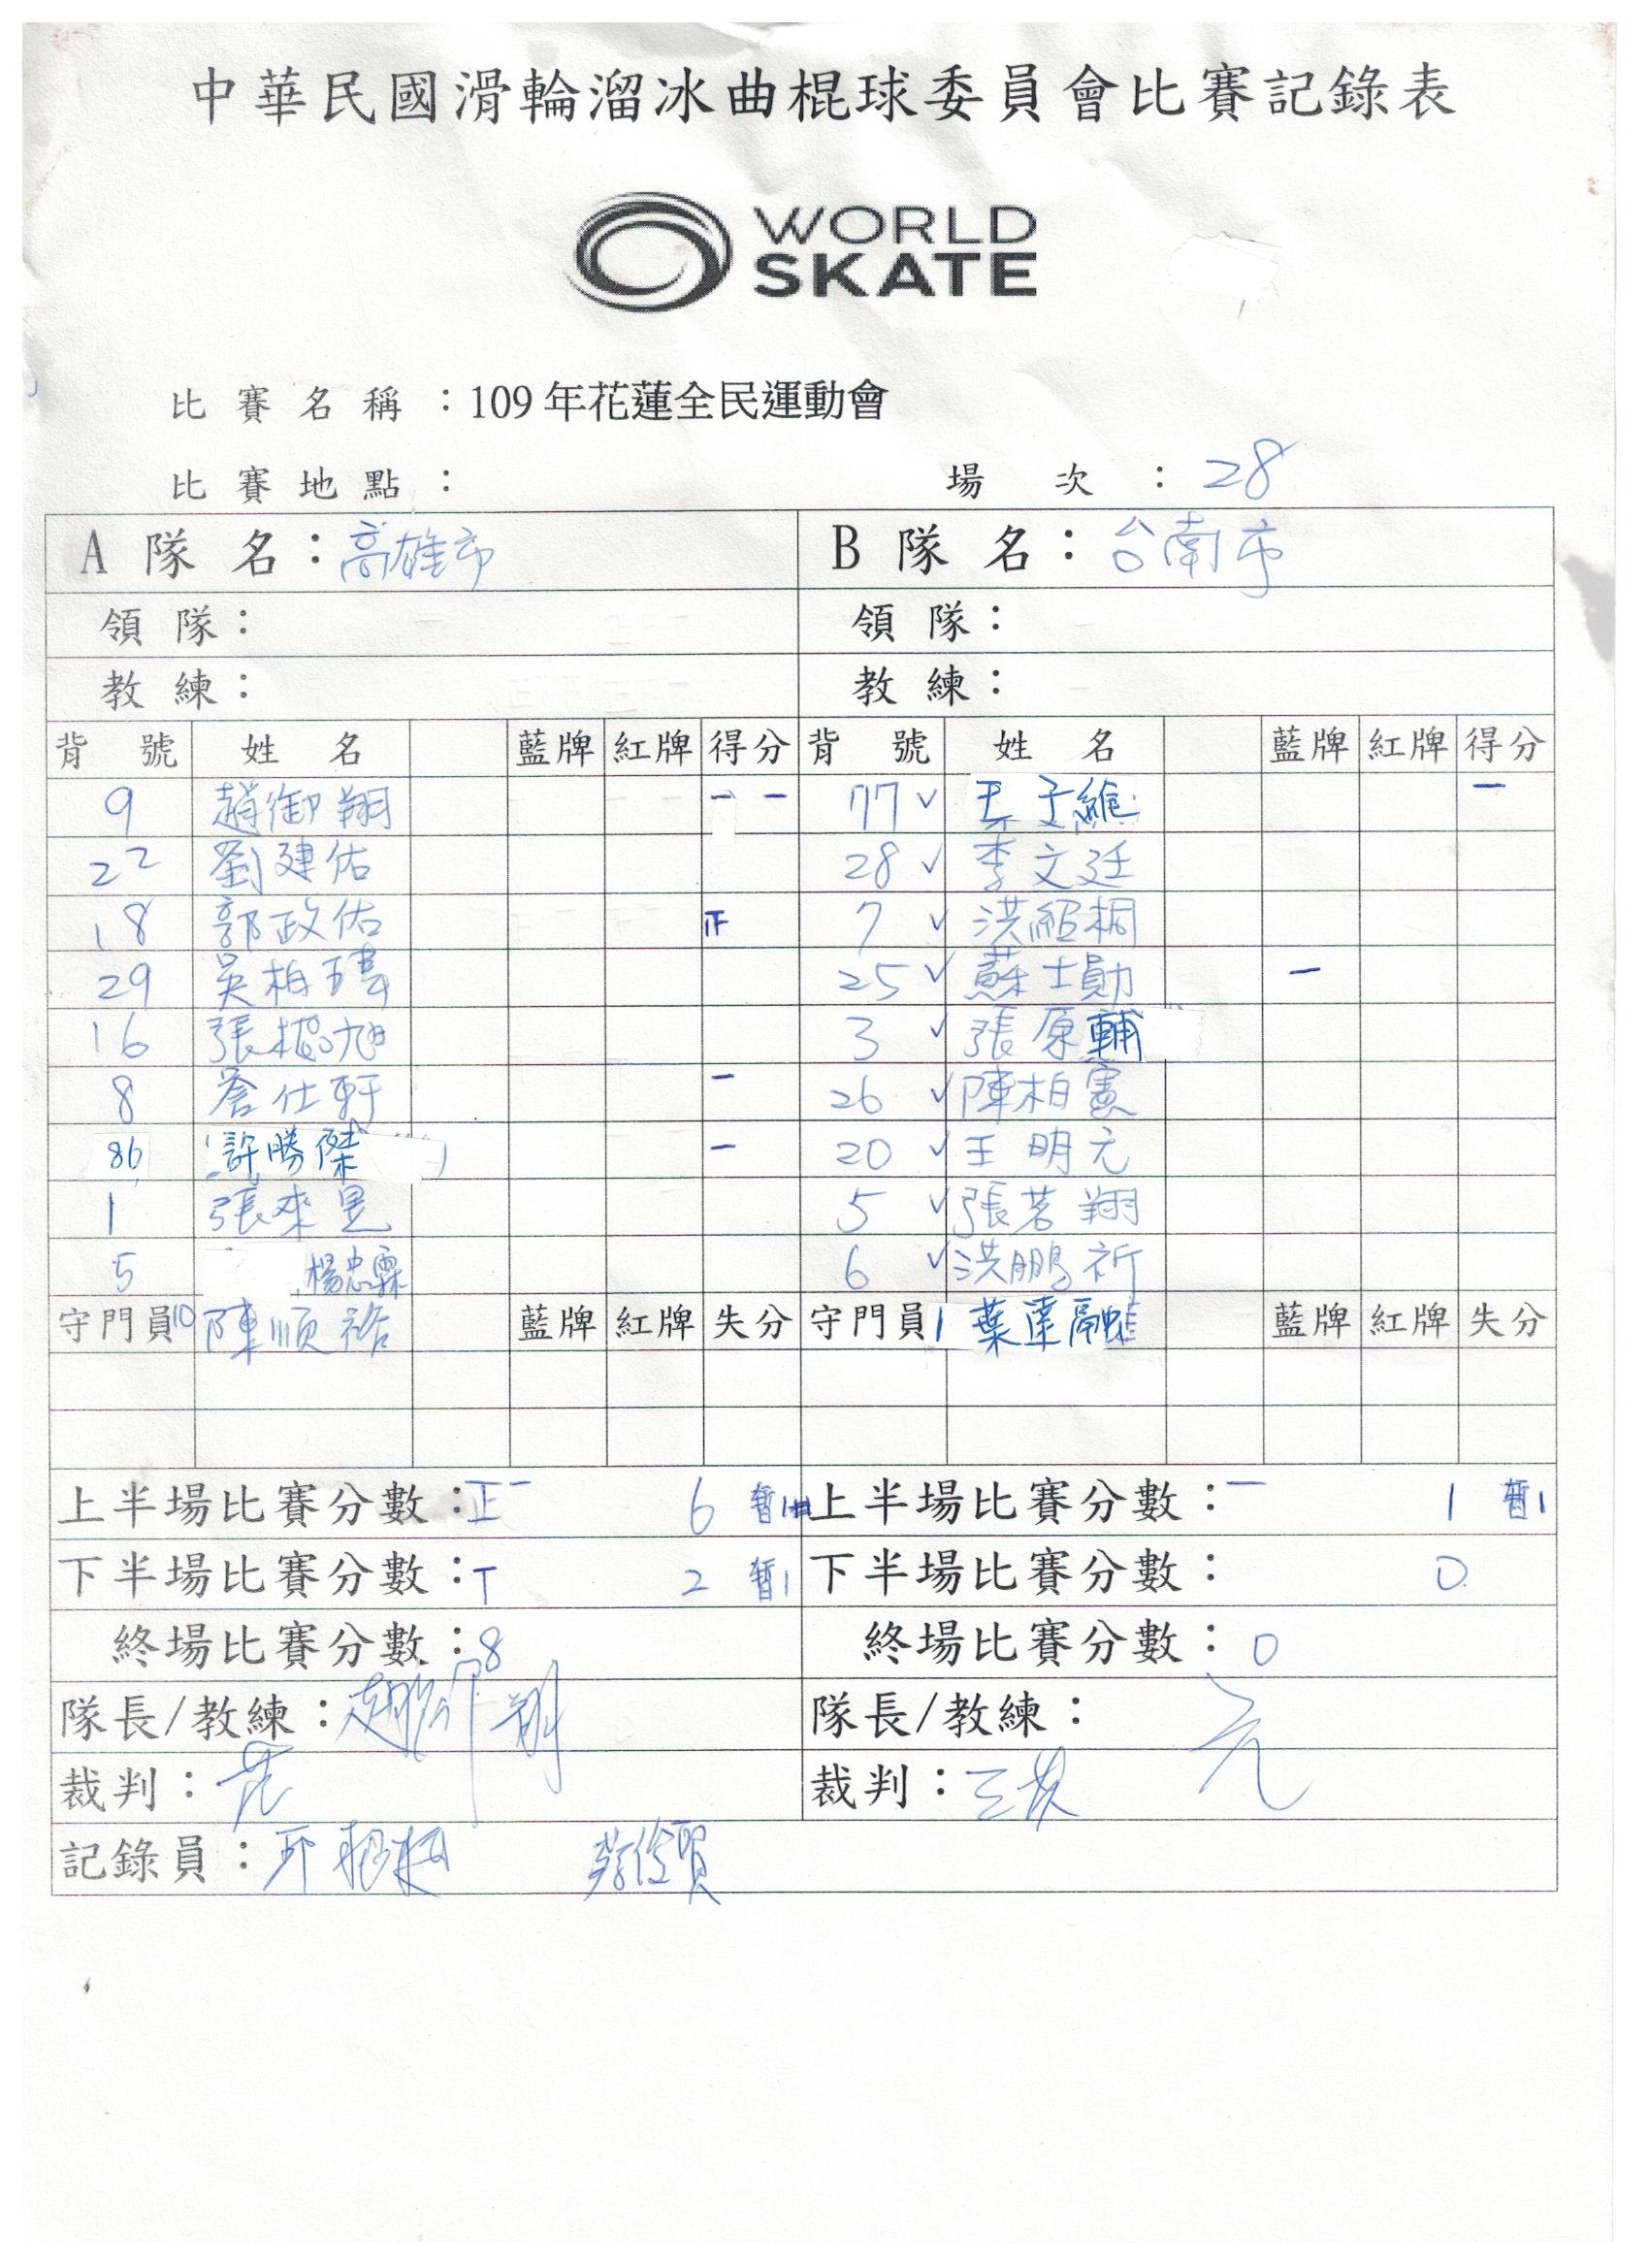 中華民國滑輪溜冰曲棍球委員會比賽記錄表
WORLD
SKATE
比賽名稱：109年花蓮全民運動會
比賽地點：　場次：28
A 隊名：高雄市　B 隊名：台南市
領隊：　領隊：
教練：　教練：
背號　姓名　藍牌　紅牌　得分　背號　姓名　藍牌　紅牌　得分
9　趙御翔　一 一　77 ✓　王子維　一
22　劉建佑　28 ✓　李文廷
18　郭政佑　正　7 ✓　洪紹桐
29　吳柏　25 ✓　蘇士勛　一
16　張旭　3 ✓　張原輔
8　詹仕軒　一　26 ✓　陳柏憲
86　許勝傑　一　20 ✓　王明元
1　張來昱　5 ✓　張茗翔
5　楊忠霖　6 ✓　洪鵬祈
守門員10　陳順裕　藍牌　紅牌　失分　守門員1　葉達融　藍牌　紅牌　失分
上半場比賽分數：正一　6　暫1　上半場比賽分數：一　1　暫1
下半場比賽分數：丅　2　暫1　下半場比賽分數：　0
終場比賽分數：8　終場比賽分數：0
隊長/教練：趙御翔　隊長/教練：元
裁判：　裁判：
記錄員：